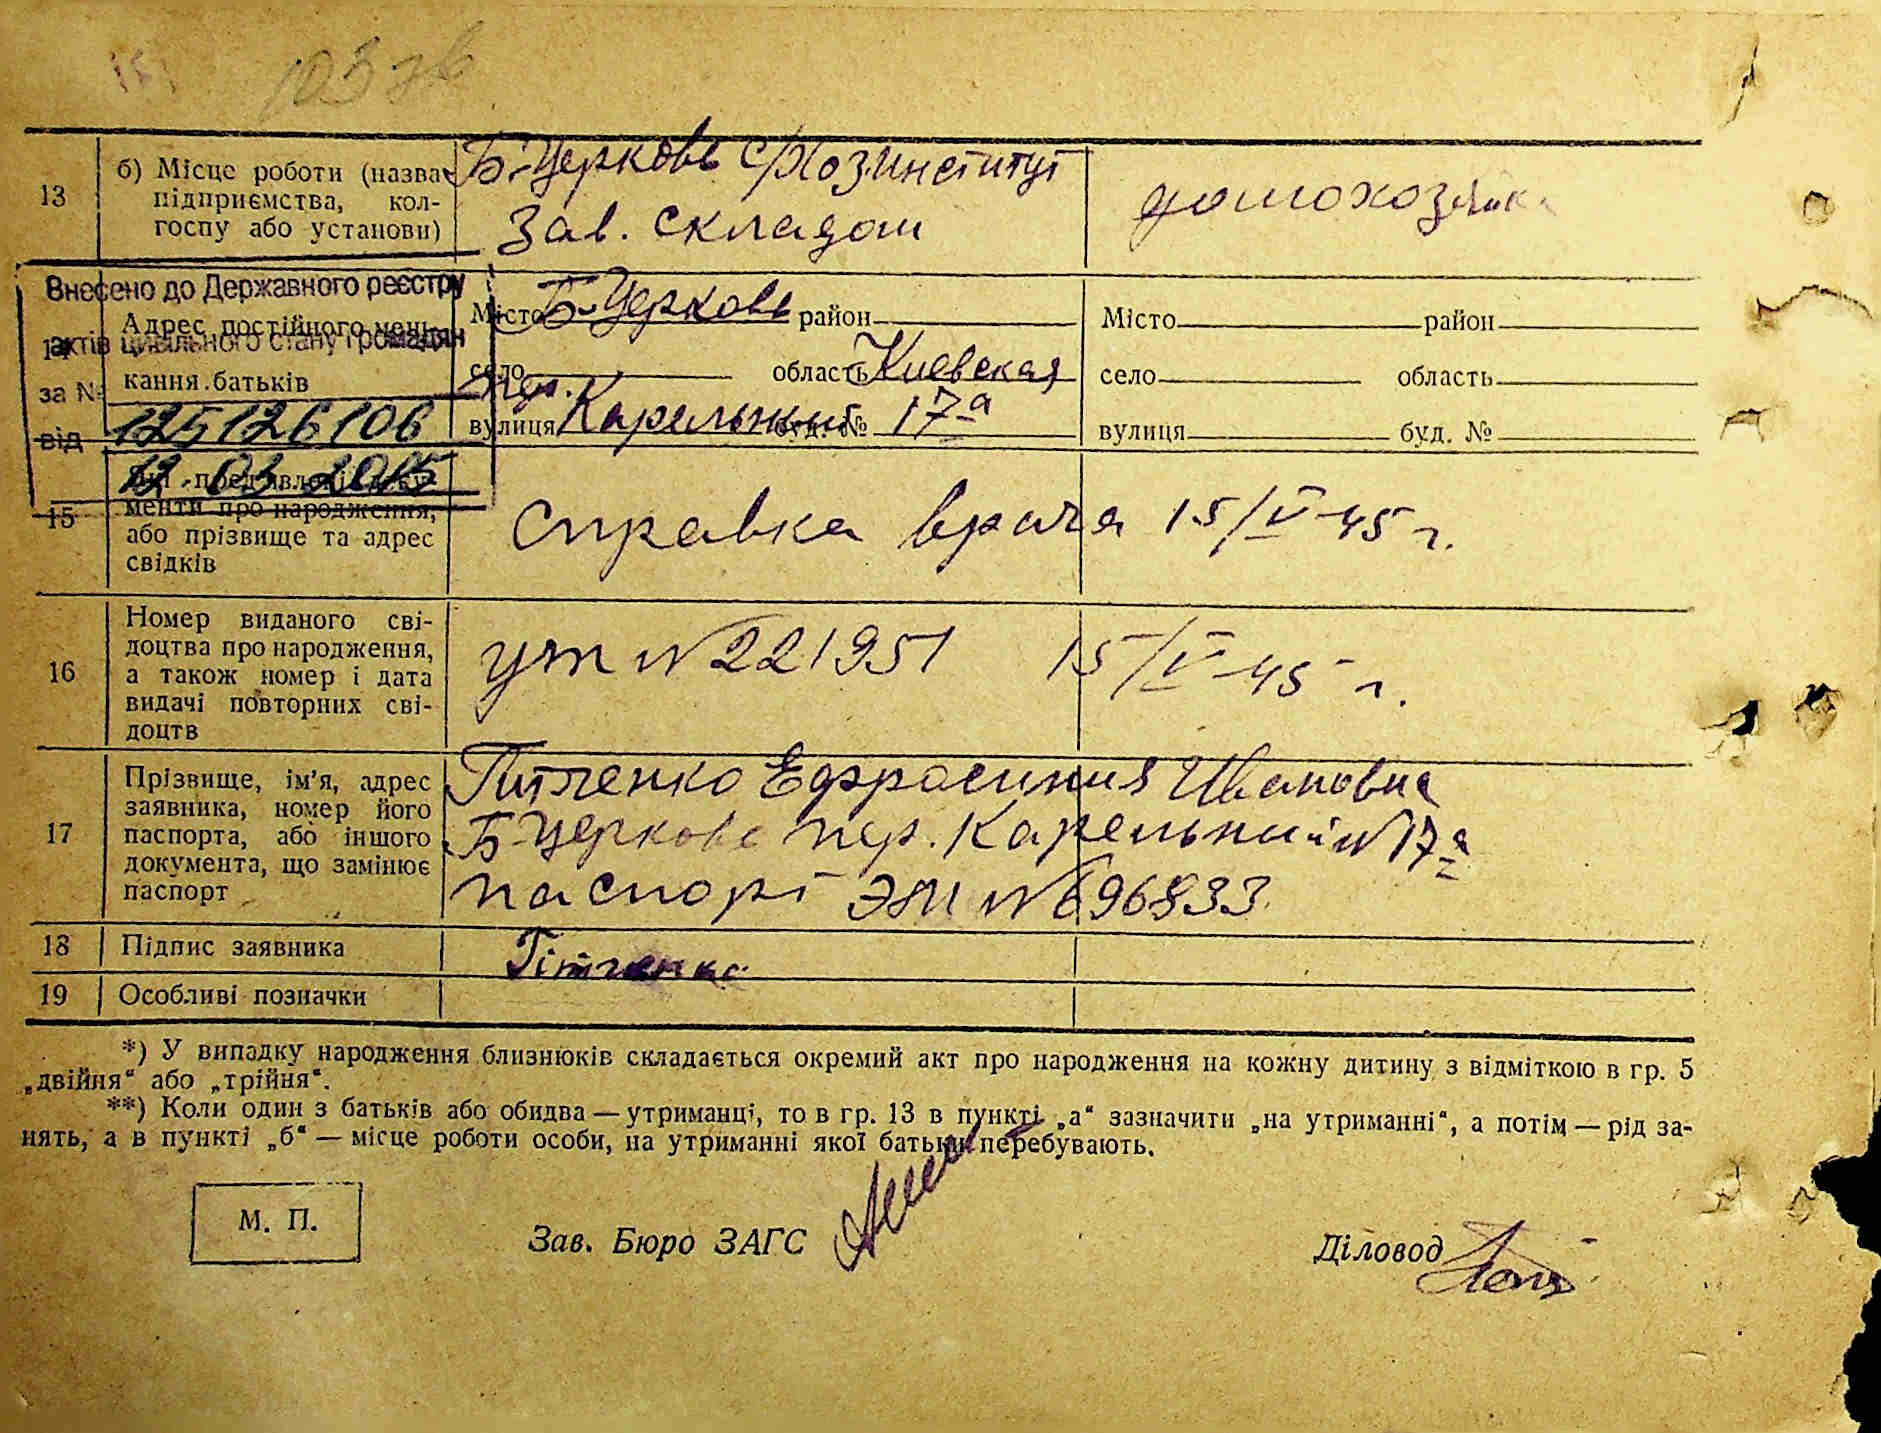 103 зв
13
б) Місце роботи (назва
підприємства, кол-
госпу або установи)
Б-Церковь с/хозинститут
Зав. складом
домохозяйка
Внесено до Державного реєстру
актів цивільного стану громадян
за №
125126106
від
12.03.2015
Адрес постійного меш-
кання батьків
Місто Б-Церковь район
село область Киевская
пер.
вулиця Карельный буд. № 17а
Місто район
село область
вулиця буд. №
15
менти про народження,
або прізвище та адрес
свідків
Справка врача 15/V-45 г.
16
Номер виданого сві-
доцтва про народження,
а також номер і дата
видачі повторних сві-
доцтв
УТ № 221951 15/V-45 г.
17
Прізвище, ім'я, адрес
заявника, номер його
паспорта, або іншого
документа, що замінює
паспорт
Титченко Ефросиния Ивановна
Б-Церковь пер. Карельный № 17а
паспорт № 696833
18
Підпис заявника
Тітченко
19
Особливі позначки
*) У випадку народження близнюків складається окремий акт про народження на кожну дитину з відміткою в гр. 5
„двійня“ або „трійня“.
**) Коли один з батьків або обидва — утриманці, то в гр. 13 в пункті „а“ зазначити „на утриманні“, а потім — рід за-
нять, а в пункті „б“ — місце роботи особи, на утриманні якої батьки перебувають.
М. П.
Зав. Бюро ЗАГС
Діловод